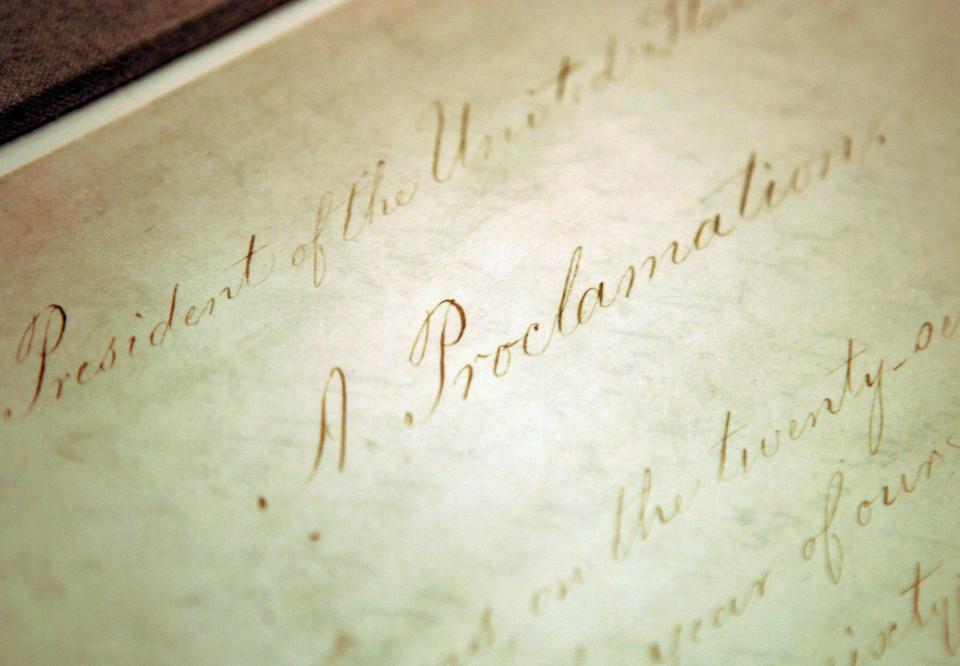 President of the United States
A Proclamation.
on the twenty-se
year of our
sixty